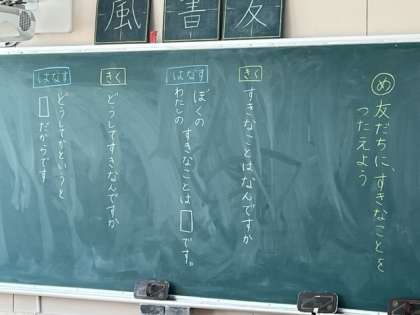 風
書
友
め 友だちに、すきなことを
つたえよう
きく
すきなことはなんですか
はなす
ぼくの
わたしの
すきなことは□です。
きく
どうしてすきなんですか
はなす
どうしてかというと
□だからです